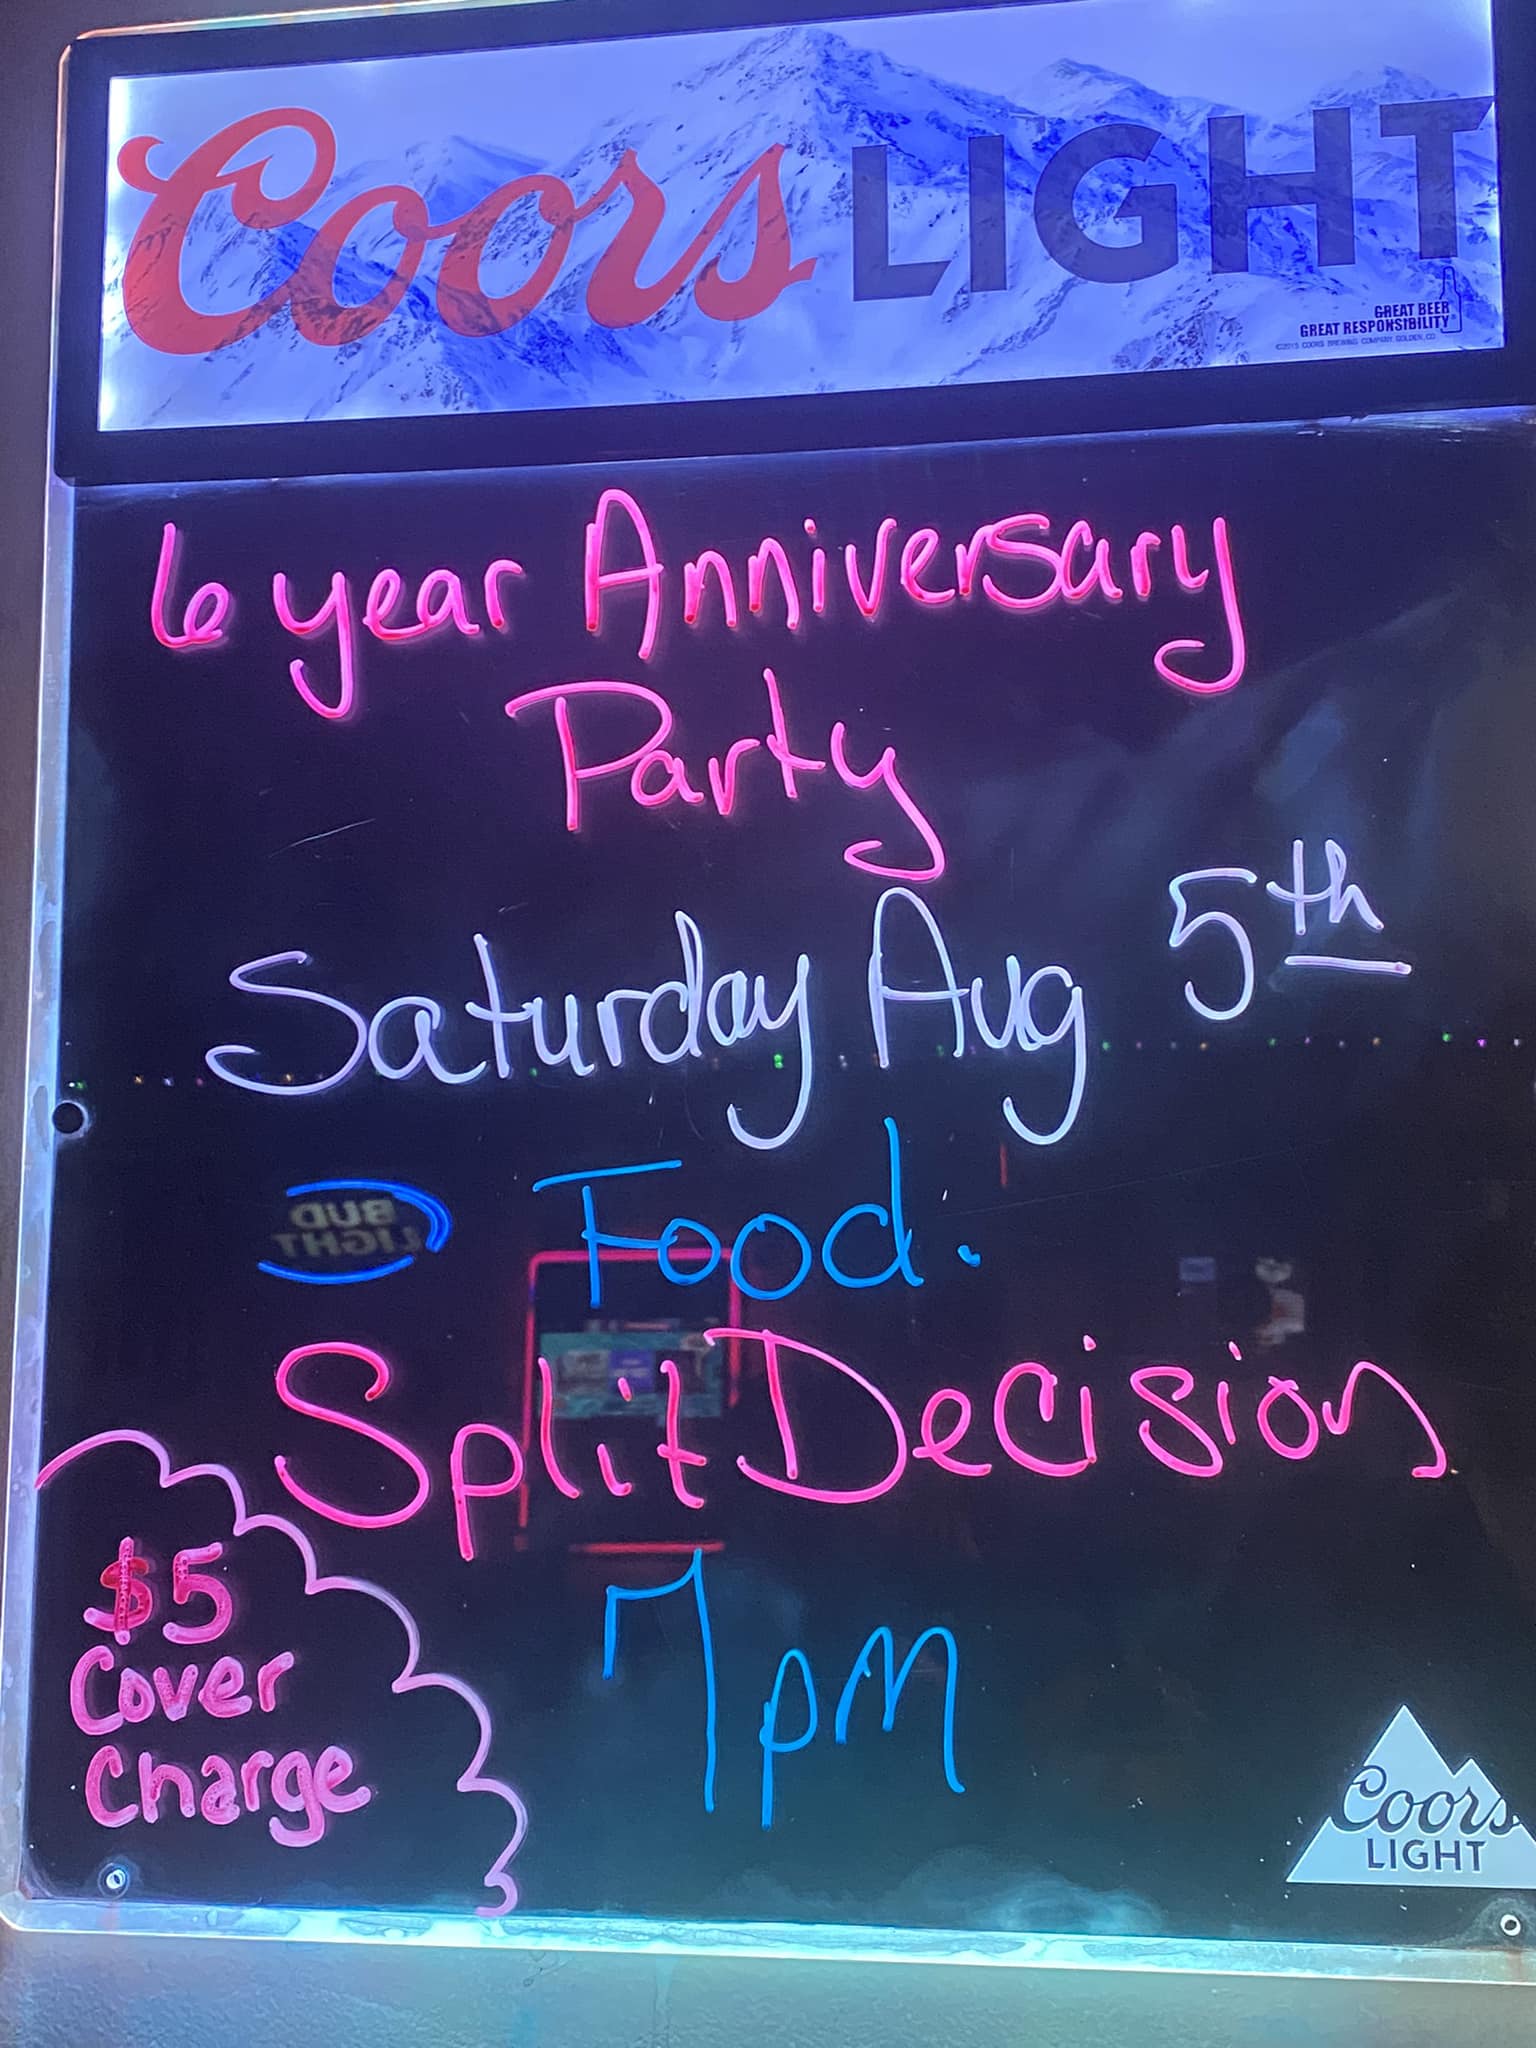 Coors LIGHT
GREAT BEER
GREAT RESPONSIBILITY
©2015 COORS BREWING COMPANY, GOLDEN, CO
6 year Anniversary
Party
Saturday Aug 5th
BUD
LIGHT
Food.
Split Decision
7pm
$5
Cover
Charge
Coors
LIGHT